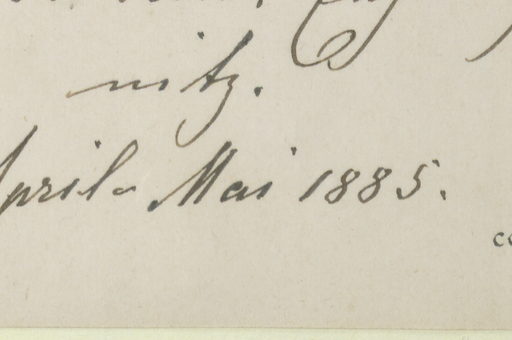 nitz.
April - Mai 1885.